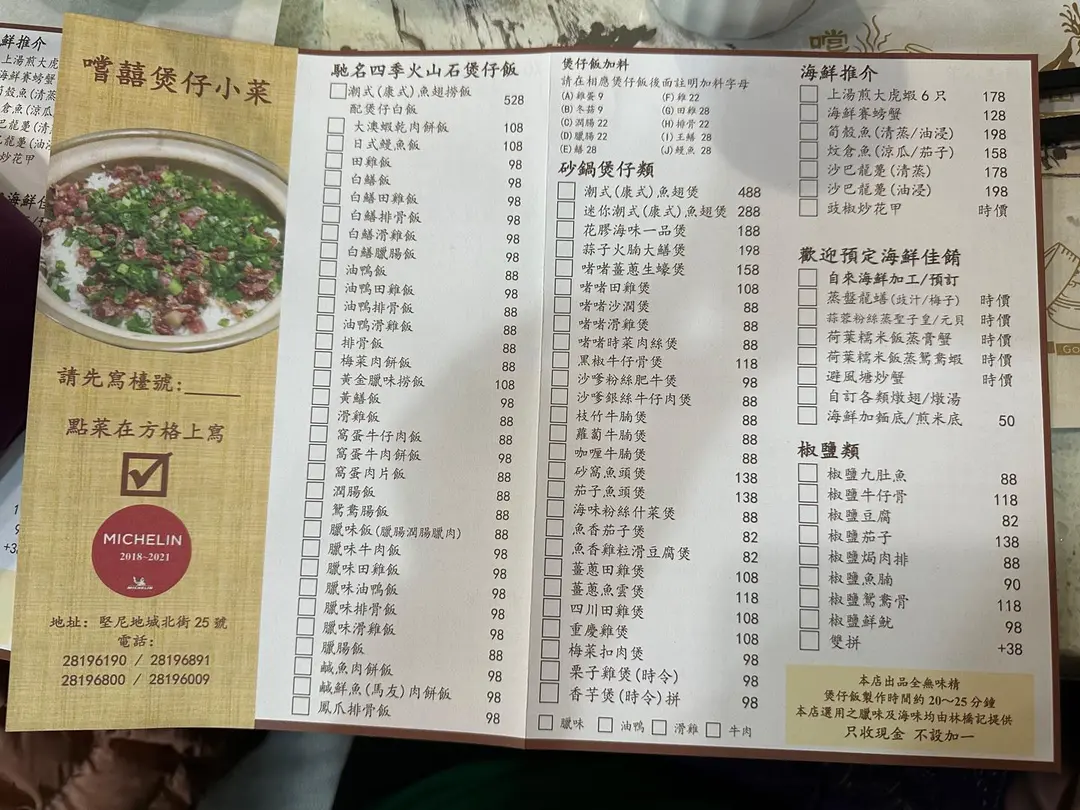 嚐囍煲仔小菜
請先寫檯號:____
點菜在方格上寫
MICHELIN
2018~2021
MICHELIN
地址: 堅尼地城北街25號
電話:
28196190 / 28196891
28196800 / 28196009
馳名四季火山石煲仔飯
潮式(康式)魚翅撈飯
配煲仔白飯 528
大澳蝦乾肉餅飯 108
日式鰻魚飯 108
田雞飯 98
白鱔飯 98
白鱔田雞飯 98
白鱔排骨飯 98
白鱔滑雞飯 98
白鱔臘腸飯 98
油鴨飯 88
油鴨田雞飯 98
油鴨排骨飯 88
油鴨滑雞飯 88
排骨飯 88
梅菜肉餅飯 88
黃金臘味撈飯 108
黃鱔飯 98
滑雞飯 88
窩蛋牛仔肉飯 88
窩蛋牛肉餅飯 98
窩蛋肉片飯 88
潤腸飯 88
鴛鴦腸飯 88
臘味飯(臘腸潤腸臘肉) 88
臘味牛肉飯 98
臘味田雞飯 98
臘味油鴨飯 98
臘味排骨飯 98
臘味滑雞飯 98
臘腸飯 88
鹹魚肉餅飯 98
鹹鮮魚(馬友)肉餅飯 98
鳳爪排骨飯 98
煲仔飯加料
請在相應煲仔飯後面註明加料字母
(A) 雞蛋 9 (F) 雞 22
(B) 冬菇 9 (G) 田雞 28
(C) 潤腸 22 (H) 排骨 22
(D) 臘腸 22 (I) 王鱔 28
(E) 鱔 28 (J) 鰻魚 28
砂鍋煲仔類
潮式(康式)魚翅煲 488
迷你潮式(康式)魚翅煲 288
花膠海味一品煲 188
蒜子火腩大鱔煲 198
啫啫薑蔥生蠔煲 158
啫啫田雞煲 108
啫啫沙潤煲 88
啫啫滑雞煲 88
啫啫時菜肉絲煲 88
黑椒牛仔骨煲 118
沙嗲粉絲肥牛煲 98
沙嗲銀絲牛仔肉煲 88
枝竹牛腩煲 88
蘿蔔牛腩煲 88
咖喱牛腩煲 88
砂窩魚頭煲 138
茄子魚頭煲 138
海味粉絲什菜煲 88
魚香茄子煲 82
魚香雞粒滑豆腐煲 82
薑蔥田雞煲 108
薑蔥魚雲煲 118
四川田雞煲 108
重慶雞煲 108
梅菜扣肉煲 98
栗子雞煲(時令) 98
香芋煲(時令)拼 98
臘味 油鴨 滑雞 牛肉
海鮮推介
上湯煎大虎蝦6只 178
海鮮賽螃蟹 128
筍殼魚(清蒸/油浸) 198
炆倉魚(涼瓜/茄子) 158
沙巴龍躉(清蒸) 178
沙巴龍躉(油浸) 198
豉椒炒花甲 時價
歡迎預定海鮮佳餚
自來海鮮加工/預訂
蒸盤龍鱔(豉汁/梅子) 時價
蒜蓉粉絲蒸聖子皇/元貝 時價
荷葉糯米飯蒸膏蟹 時價
荷葉糯米飯蒸鴛鴦蝦 時價
避風塘炒蟹 時價
自訂各類燉翅/燉湯
海鮮加麵底/煎米底 50
椒鹽類
椒鹽九肚魚 88
椒鹽牛仔骨 118
椒鹽豆腐 82
椒鹽茄子 138
椒鹽焗肉排 88
椒鹽魚腩 90
椒鹽鴛鴦骨 118
椒鹽鮮魷 98
雙拼 +38
本店出品全無味精
煲仔飯製作時間約20~25分鐘
本店選用之臘味及海味均由林橋記提供
只收現金 不設加一